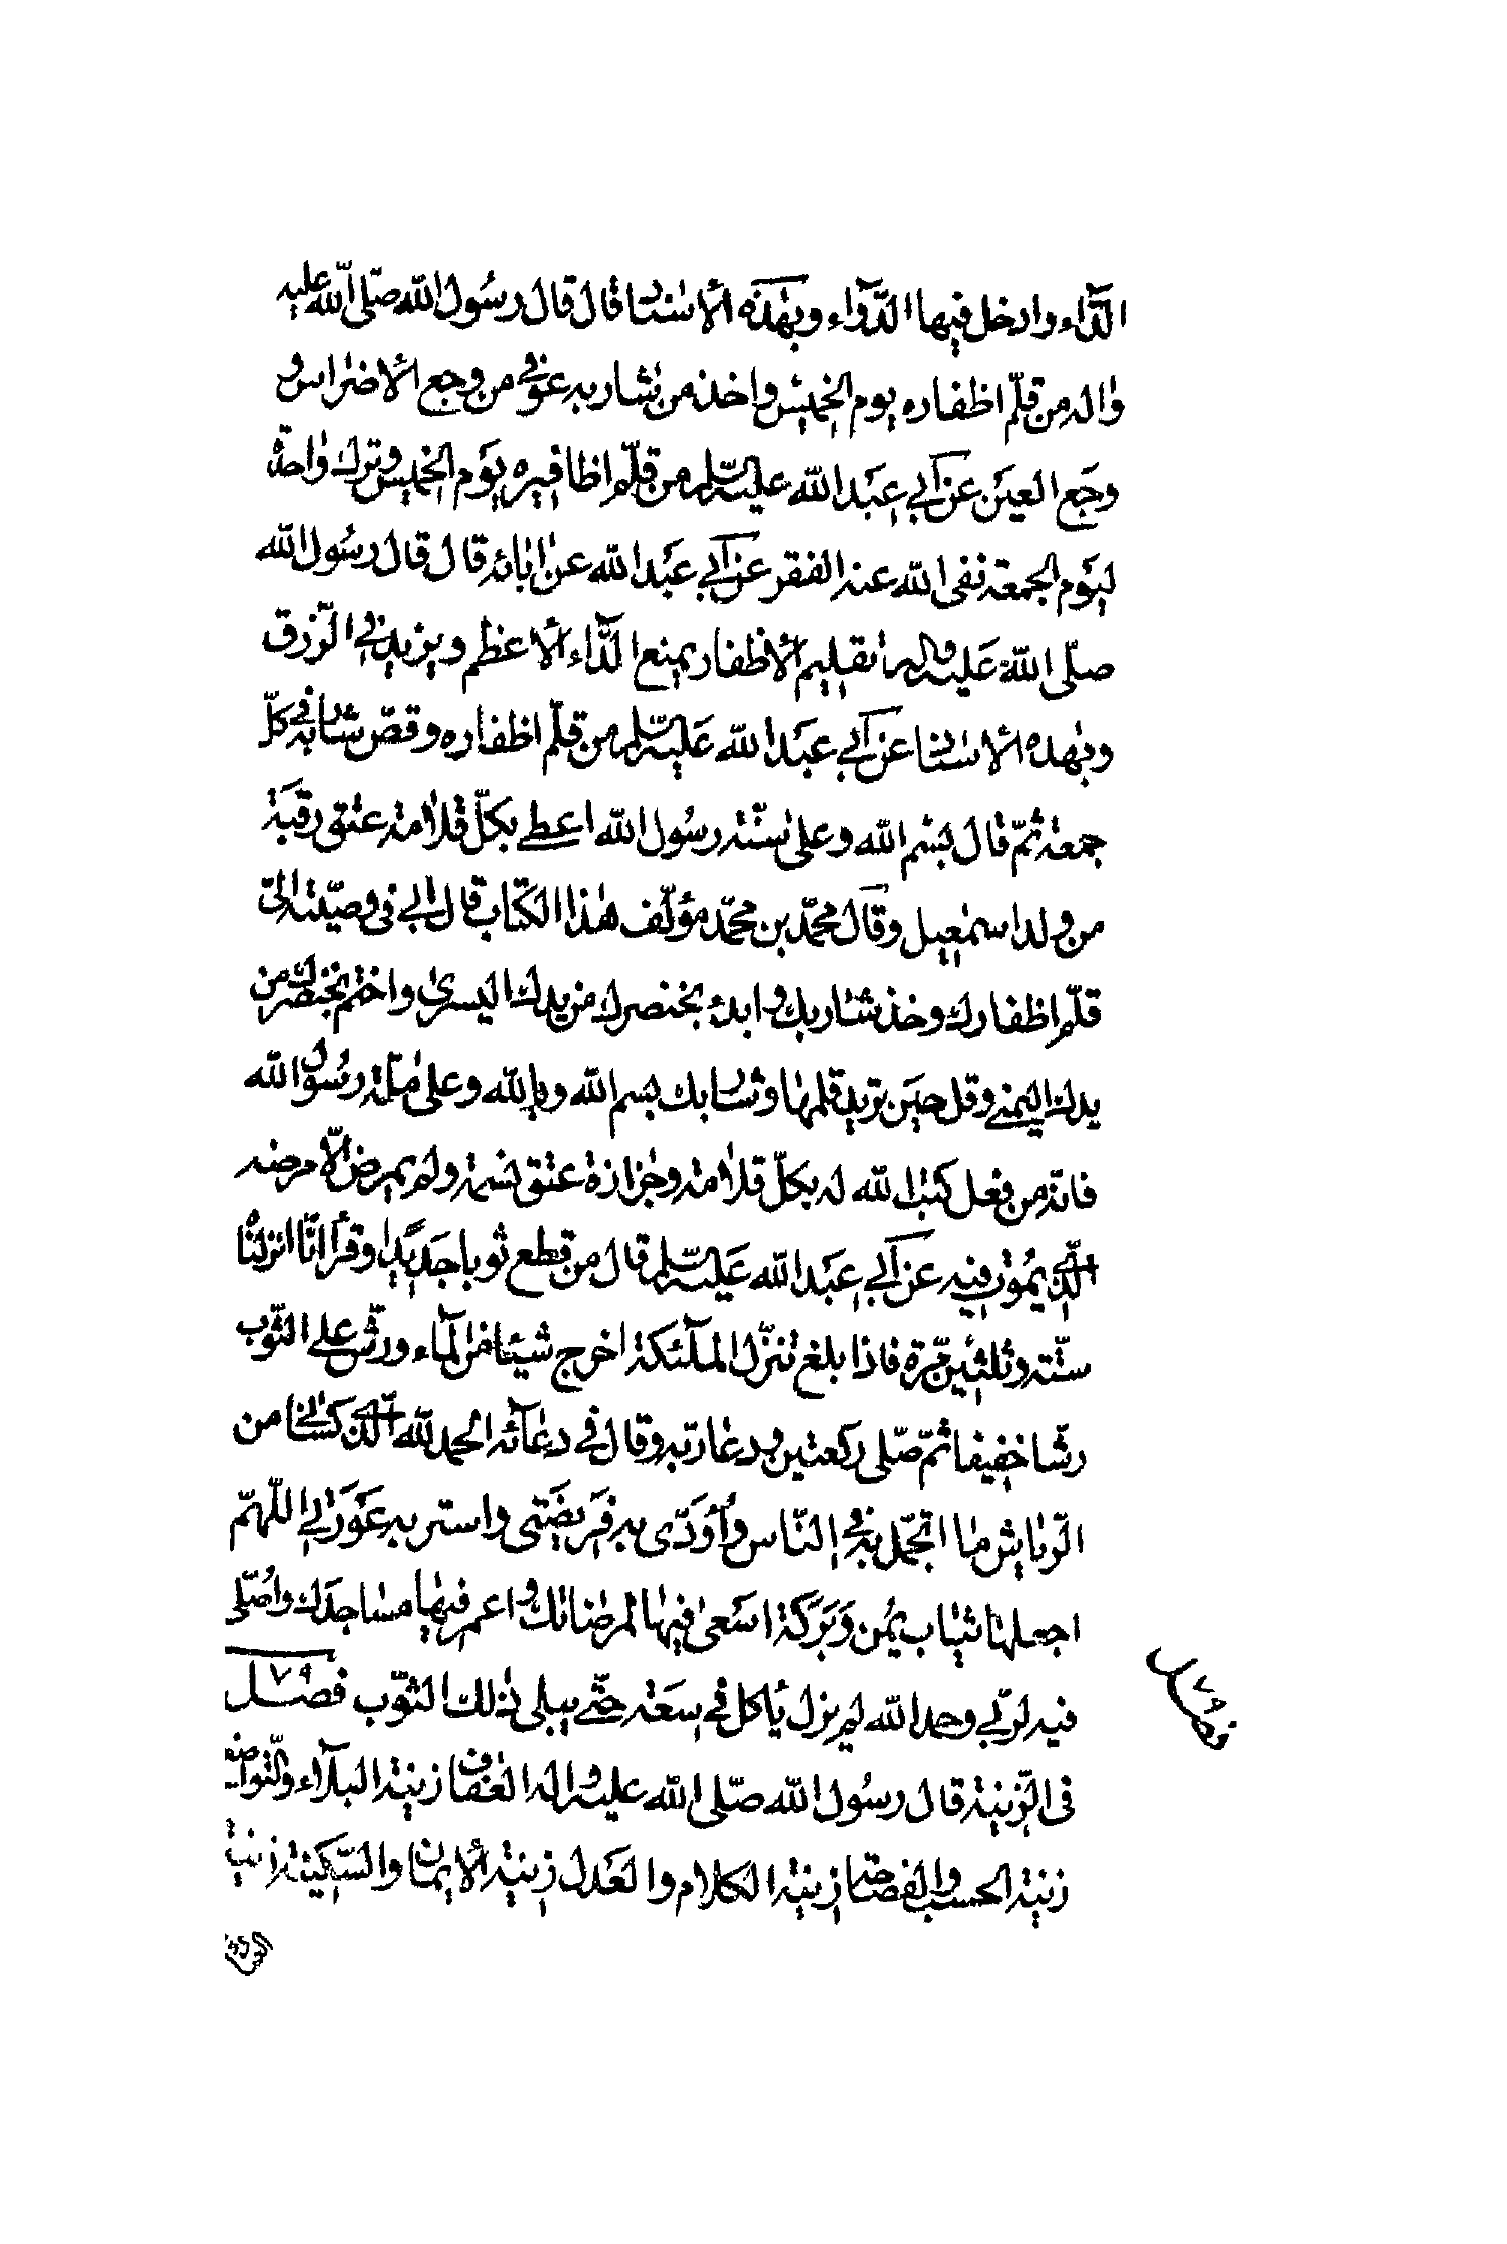 الدّآء وادخل فيها الدّوآء وبهذه الأسناد قال قال رسول الله صلّى الله عليه
واله من قلّم اظفاره يوم الخميس واخذ من شاربه عوفى من وجع الأضراس و
وجع العين عن أبي عبد الله عليه السّلم من قلّم اظافيره يوم الخميس وترك واحدة
ليوم الجمعة نفى الله عنه الفقر عن أبي عبد الله عن ابائه قال قال رسول الله
صلّى الله عليه واله تقليم الأظفار يمنع الدّآء الأعظم ويزيد في الرّزق
وبهذه الأسناد عن أبي عبد الله عليه السّلم من قلّم اظفاره وقصّ شاربه في كلّ
جمعة ثمّ قال بسم الله وعلى سنّة رسول الله اعطى بكلّ قلامة عتق رقبة
من ولد اسمعيل وقال محمّد بن محمّد مؤلّف هذا الكتاب قال ابي في وصيّته اليّ
قلّم اظفارك وخذ شاربك وابدء بخنصرك من يدك اليسرى واختم بخنصرك من
يدك اليمنى وقل حين تريد قلمها وشاربك بسم الله وبالله وعلى ملّة رسول الله
فانّه من فعل كتب الله له بكلّ قلامة وجزازة عتق نسمة ولم يمرض الّا مرضه
الّذي يموت فيه عن أبي عبد الله عليه السّلم قال من قطع ثوبا جديدا وقرأ انّا انزلناه
ستّة وثلثين مرّة فاذا بلغ تنزّل الملآئكة اخرج شيئا من المآء ورشّ على الثّوب
رشّا خفيفا ثمّ صلّى ركعتين ودعا ربّه وقال في دعآئه الحمد لله الّذي كساني من
الرّياش ما اتجمّل به في النّاس وأؤدّى به فريضتى واستر به عورتي اللّهمّ
اجعلها ثياب يمن وبركة اسعى فيها لمرضاتك واعمر فيها مساجدك واصلّى
فيه لربّي وحمد الله لم يزل يأكل في سعة حتّى يبلى ذلك الثّوب فصل ٧٩
في الزّينة قال رسول الله صلّى الله عليه واله العفاف زينة البلآء والتّواضع
زينة الحسب والفصاحة زينة الكلام والعدل زينة الأيمان والسّكينة زينة
فصل ٧٩